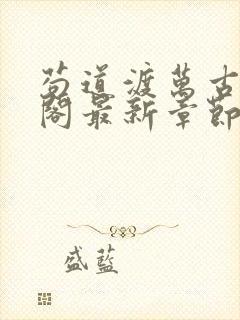 苟道渡萬古
閣最新章節
盛藍